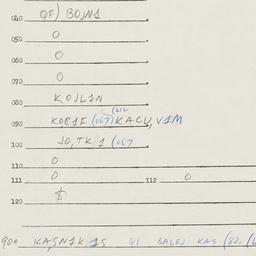 040 QF) BOJN1
050 0
060 0
070 0
080 KOJL1N
090 KO,E1E (067) KACU, V1M
100 JO,TK 1 (067
110 0
111 0 112 0
120 $
90A KAŞN1K 1S 91 BALEJ KAS (820